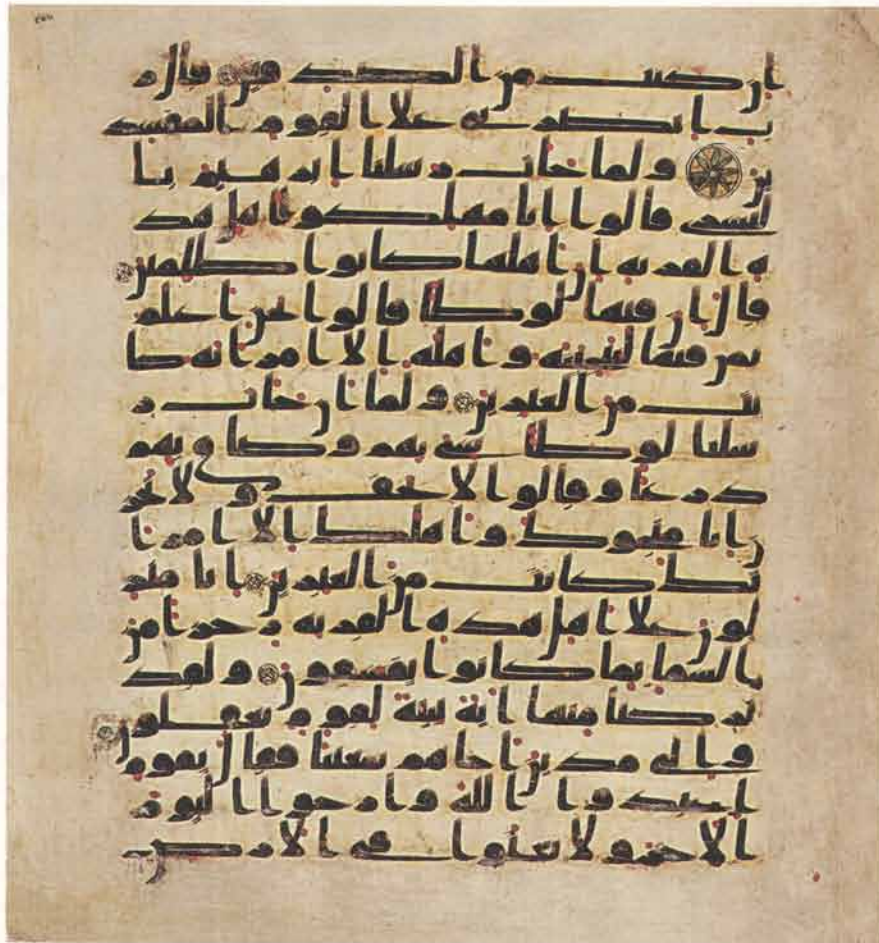 ان كنت من الصدقين قال ر
ب انصرني على القوم المفسد
ين ولما جات رسلنا ابرهيم با
لبشرى قالوا انا مهلكوا اهل هذ
ه القرية ان اهلها كانوا ظلمين
قال ان فيها لوطا قالوا نحن اعلم
بمن فيها لننجينه واهله الا امراته كا
نت من الغبرين ولما ان جات ر
سلنا لوطا سي بهم وضاق بهم
ذرعا وقالوا لا تخف ولا تحز
ن انا منجوك واهلك الا امرا
تك كانت من الغبرين انا منز
لون على اهل هذه القرية رجزا من
السما بما كانوا يفسقون ولقد
تركنا منها اية بينة لقوم يعقلون
والى مدين اخاهم شعيبا فقال يقوم
اعبدوا الله وارجوا اليوم
الاخر ولا تعثوا في الارض